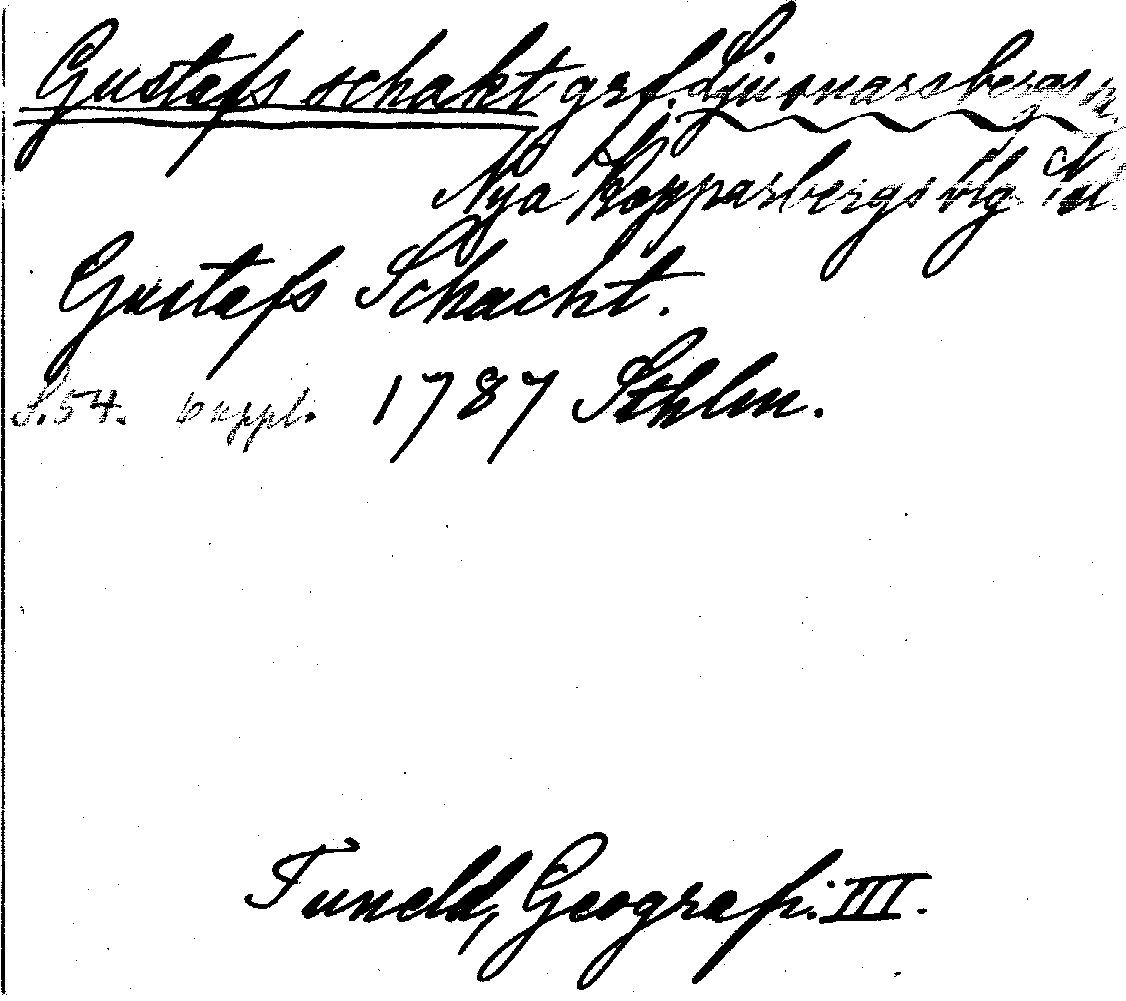 Gustafs schakt grf. Ljusnarsbergs sn.
Nya Kopparbergs blg
Gustafs Schacht.
S. 54. uppl. 1787 Sthlm.
Tuneld, Geografi. III.